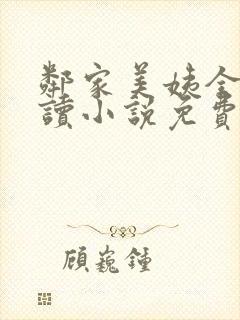 鄰家美姨全
讀小說免費
顧巍鍾